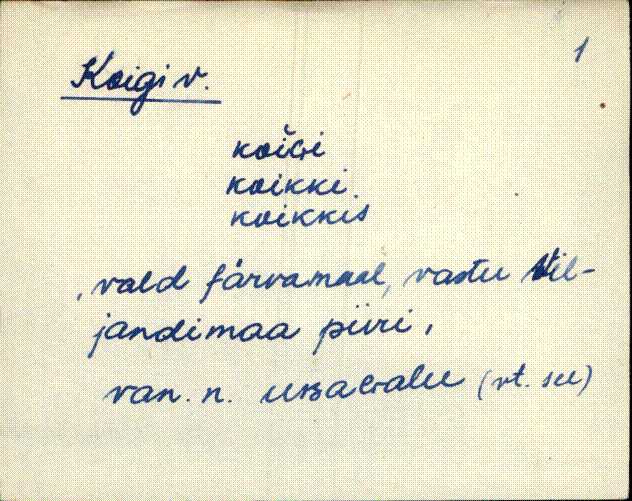 1
Koigi v.
koiGi
koikki
koikkis
, vald Järvamaal, vastu Vil-
jandimaa piiri,
van. n. (vt. see)